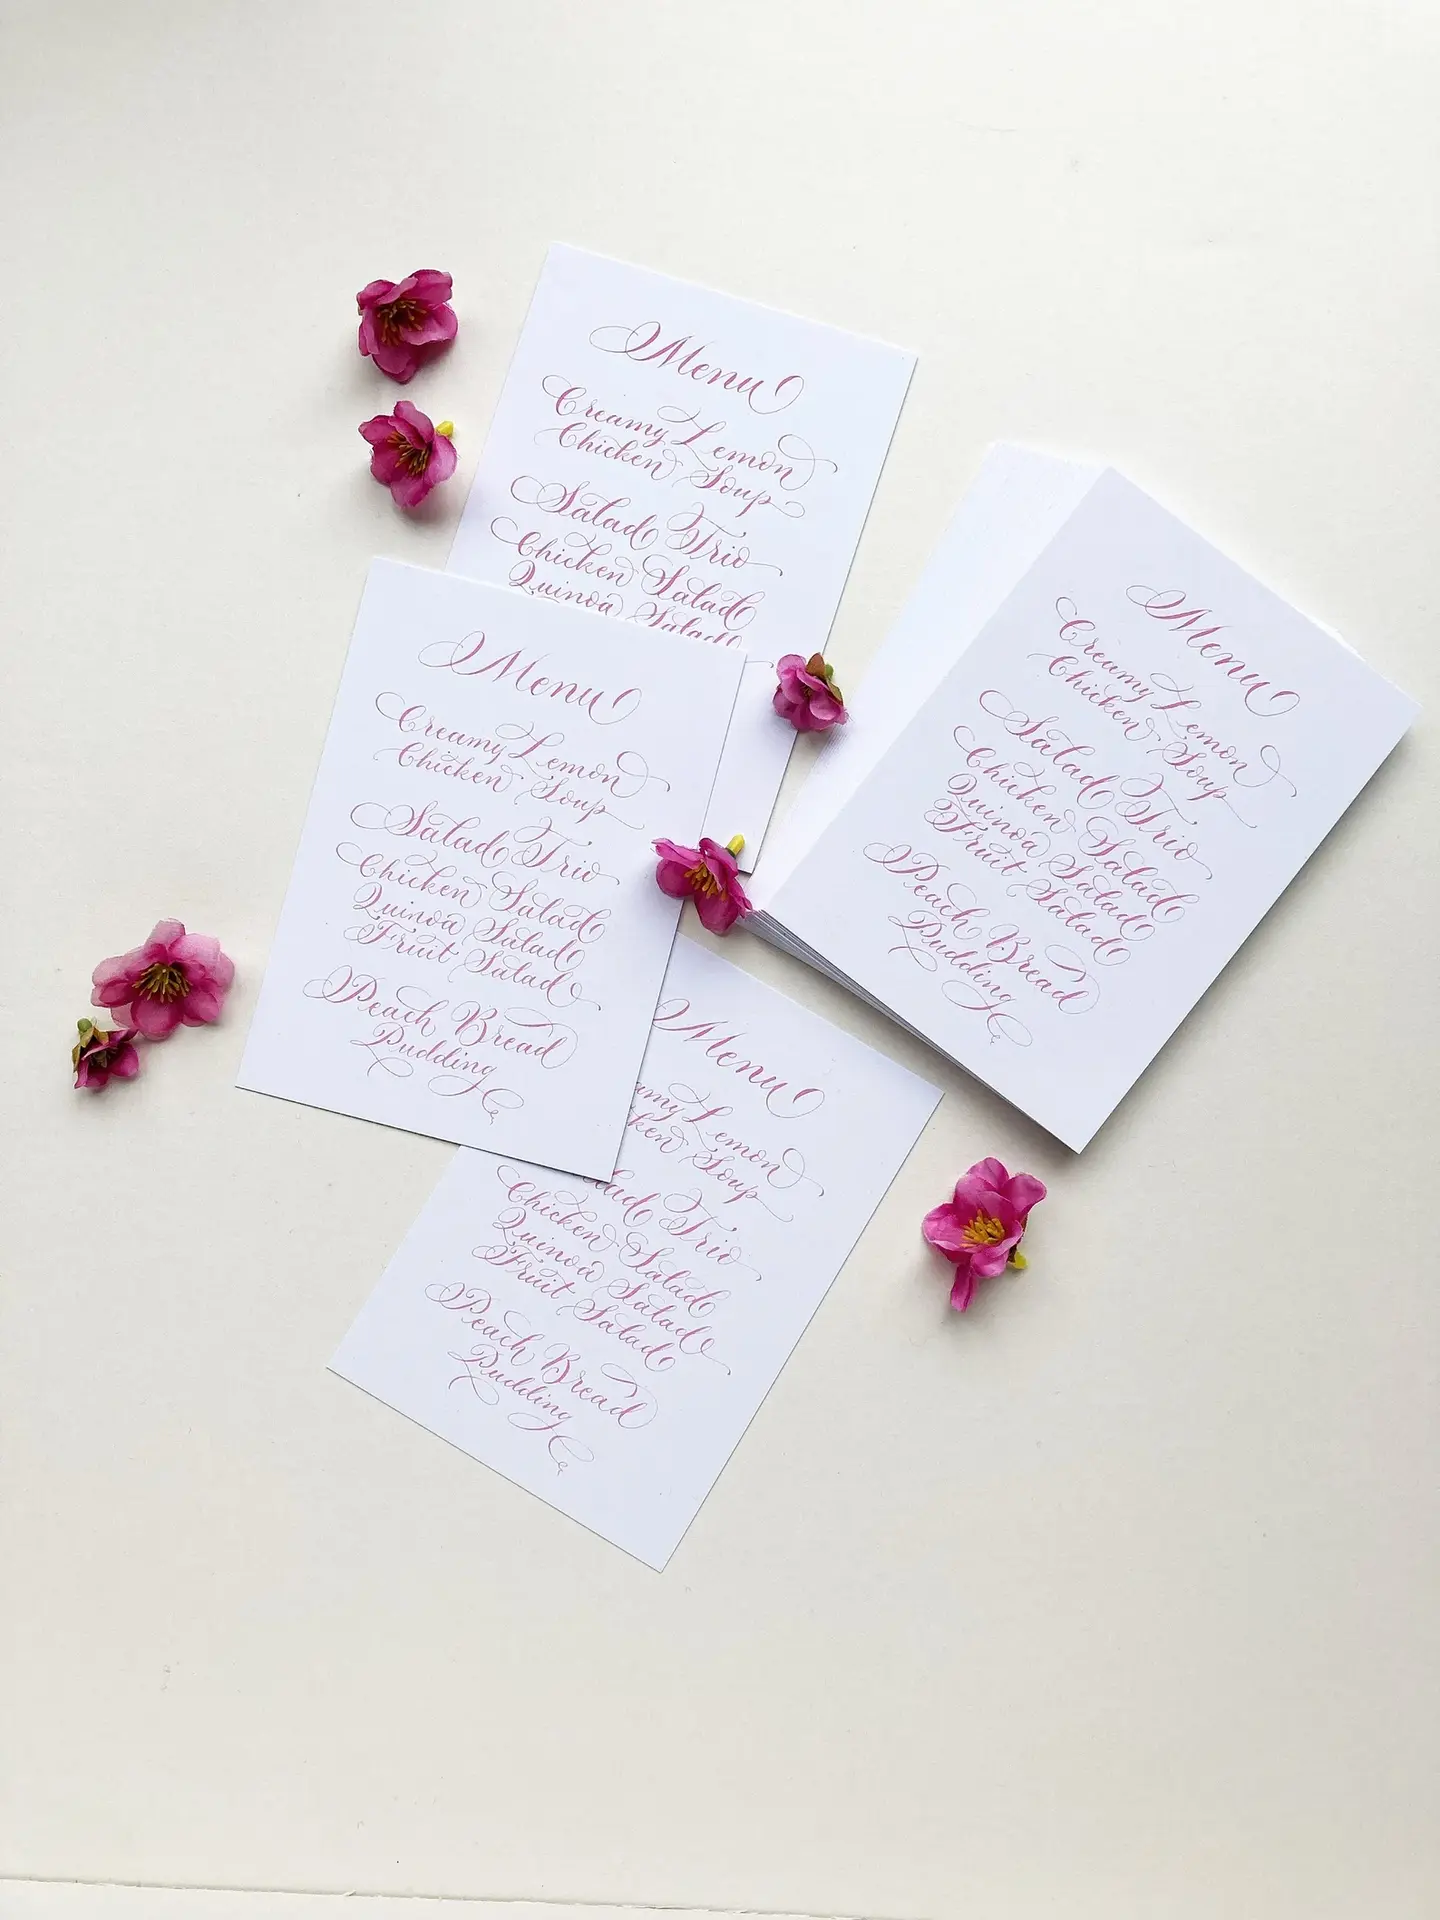 Menu
Creamy Lemon
Chicken Soup
Salad Trio
Chicken Salad
Quinoa Salad
Menu
Creamy Lemon
Chicken Soup
Salad Trio
Chicken Salad
Quinoa Salad
Fruit Salad
Peach Bread
Pudding
Menu
Creamy Lemon
Chicken Soup
Salad Trio
Chicken Salad
Quinoa Salad
Fruit Salad
Peach Bread
Pudding
Menu
amy Lemon
ken Soup
lad Trio
Chicken Salad
Quinoa Salad
Fruit Salad
Peach Bread
Pudding